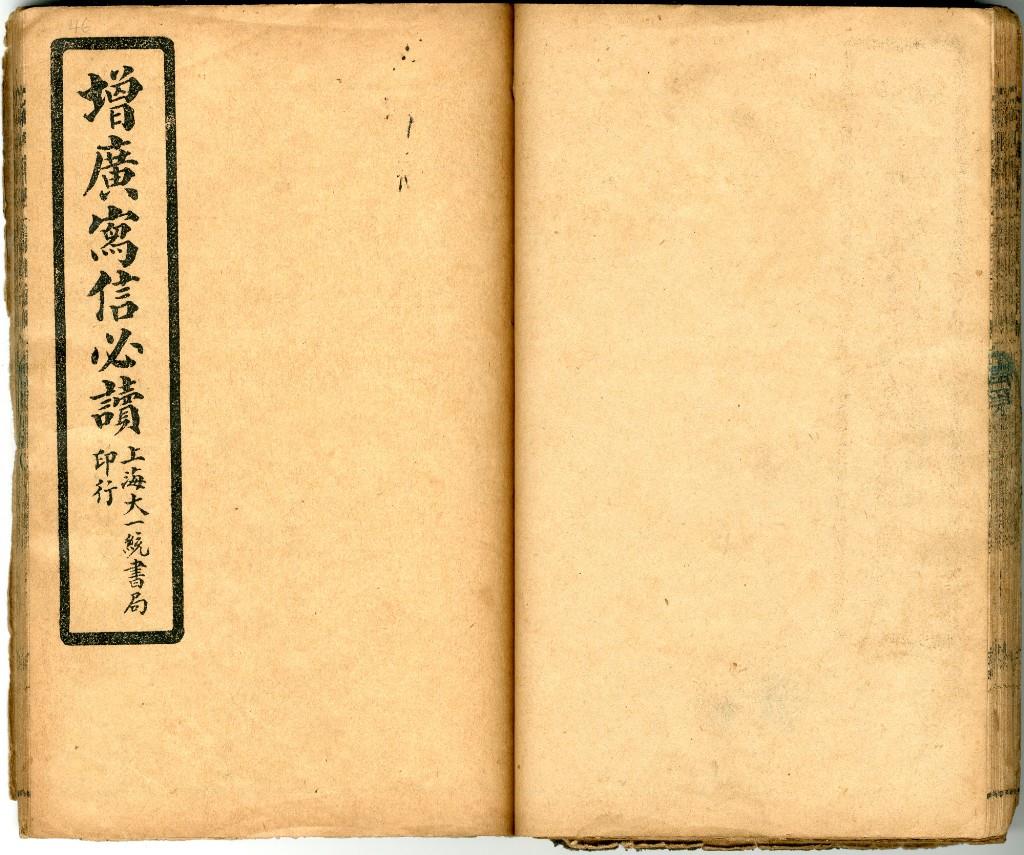 增廣寫信必讀
上海大一統書局
印行
46